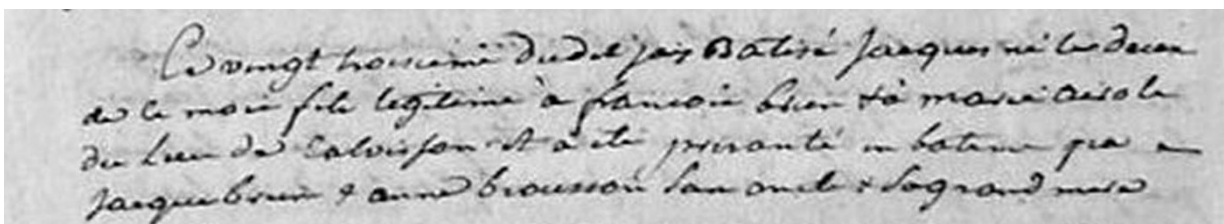 Le vingt troisieme dudit jay Batisé Jacques né le
de ce mois fils legitime à francois brun & à marie airole
du lieu de Calvisson et a ete presanté au bateme par
Jacque brun & anne brousson son oncle & sa grand mere